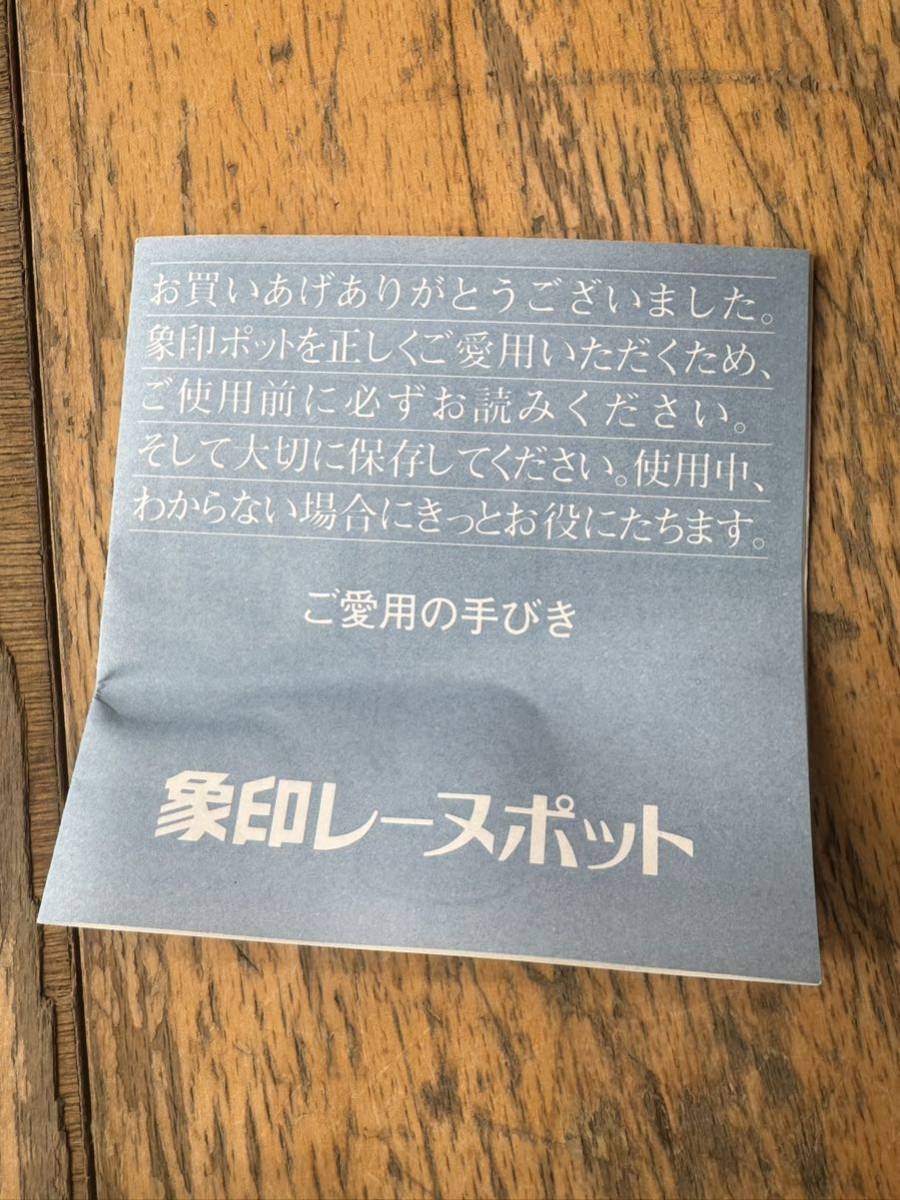 お買いあげありがとうございました。
象印ポットを正しくご愛用いただくため、
ご使用前に必ずお読みください。
そして大切に保存してください。使用中、
わからない場合にきっとお役にたちます。
ご愛用の手びき
象印レーヌポット